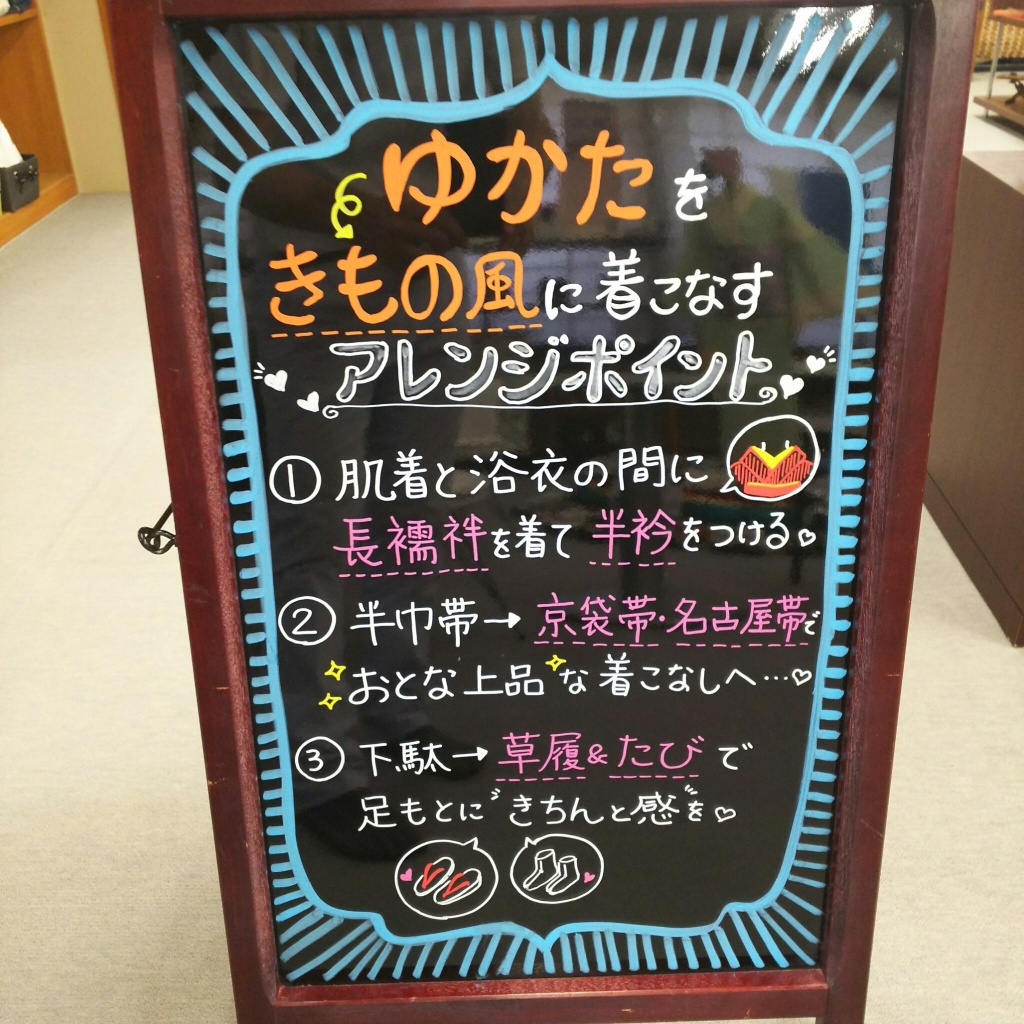 ゆかたを
きもの風に着こなす
アレンジポイント
① 肌着と浴衣の間に
長襦袢を着て半衿をつける♡
② 半巾帯→京袋帯・名古屋帯で
おとな上品な着こなしへ…♡
③ 下駄→草履&たびで
足もとに"きちんと感"を♡